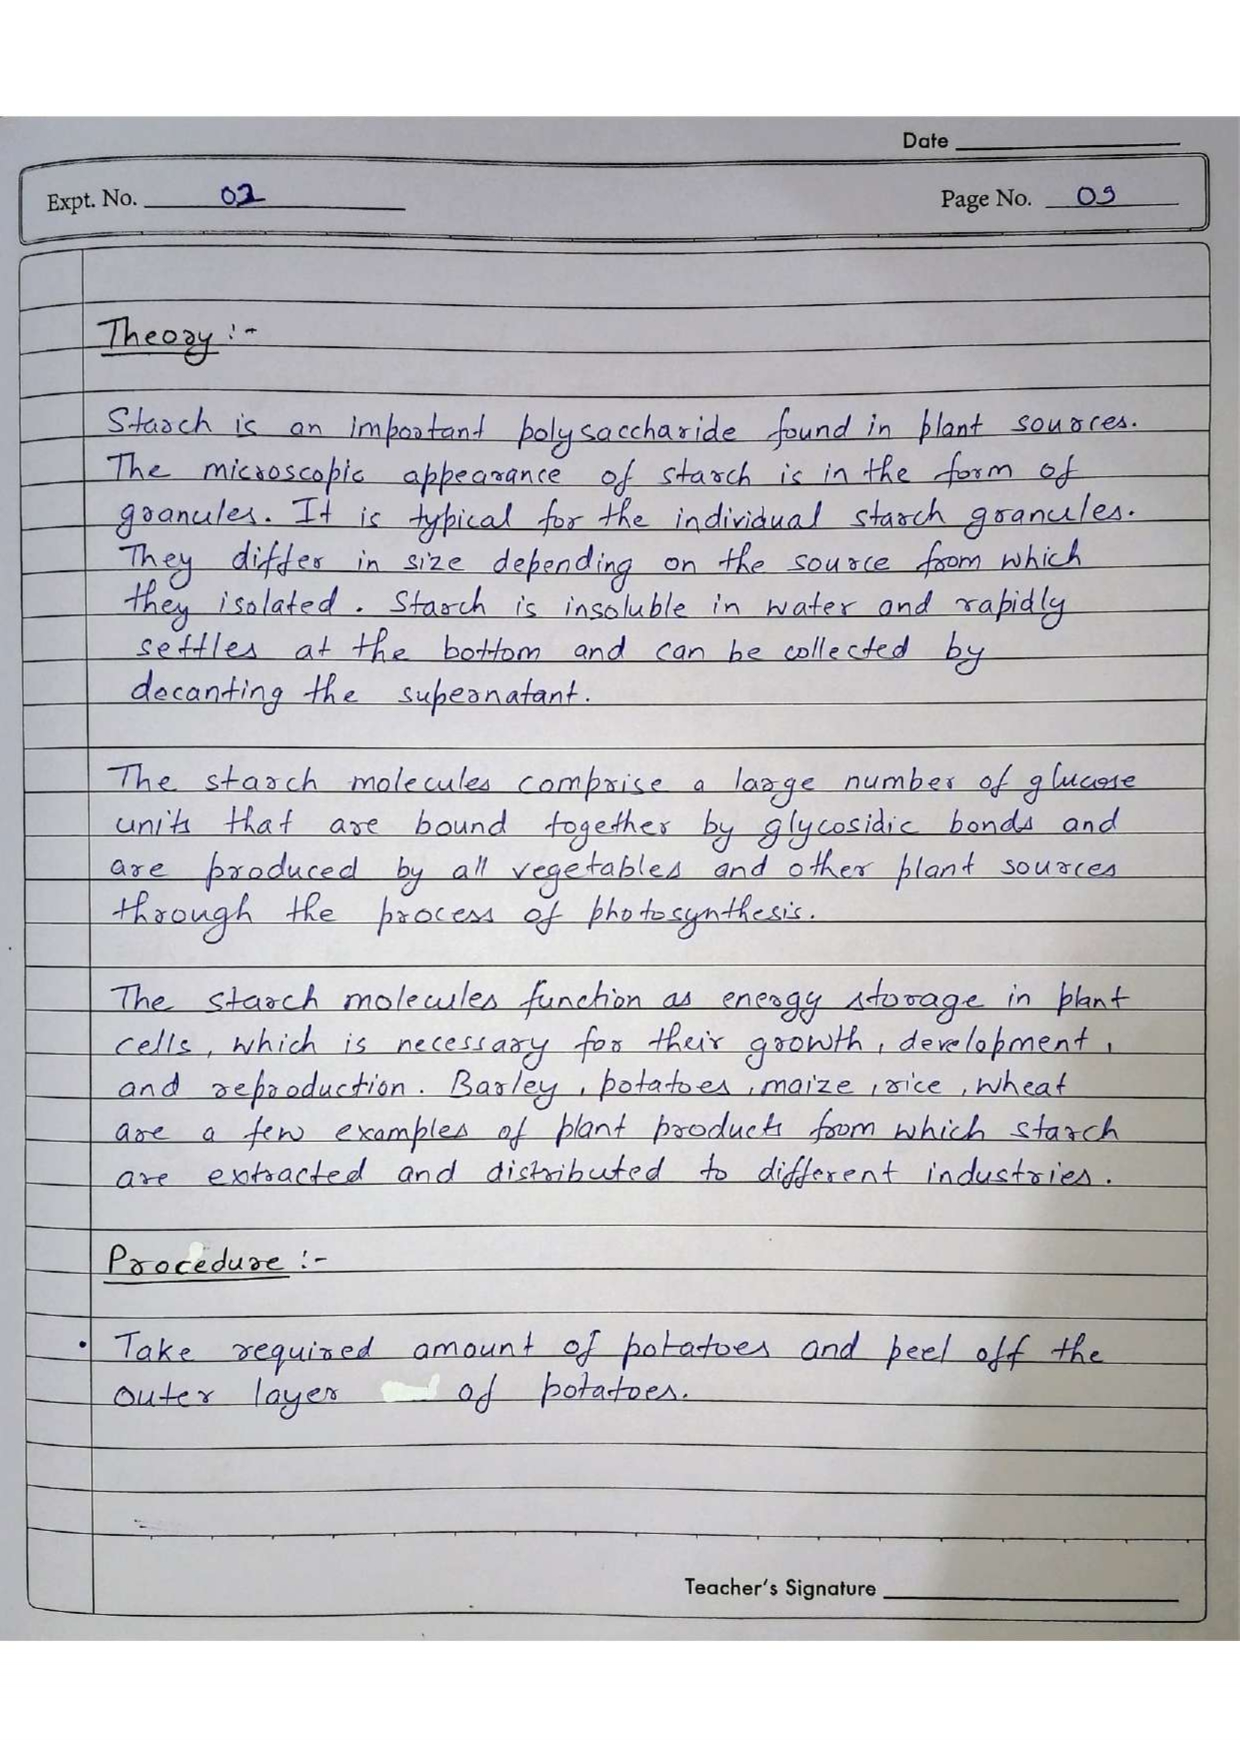 Date
Expt. No. 02
Page No. 09
Theory :-
Starch is an important polysaccharide found in plant sources.
The microscopic appearance of starch is in the form of
granules. It is typical for the individual starch granules.
They differ in size depending on the source from which
they isolated. Starch is insoluble in water and rapidly
settles at the bottom and can be collected by
decanting the supernatant.
The starch molecules comprise a large number of glucose
units that are bound together by glycosidic bonds and
are produced by all vegetables and other plant sources
through the process of photosynthesis.
The starch molecules function as energy storage in plant
cells, which is necessary for their growth, development,
and reproduction. Barley, potatoes, maize, rice, wheat
are a few examples of plant products from which starch
are extracted and distributed to different industries.
Procedure :-
• Take required amount of potatoes and peel off the
outer layer of potatoes.
Teacher's Signature